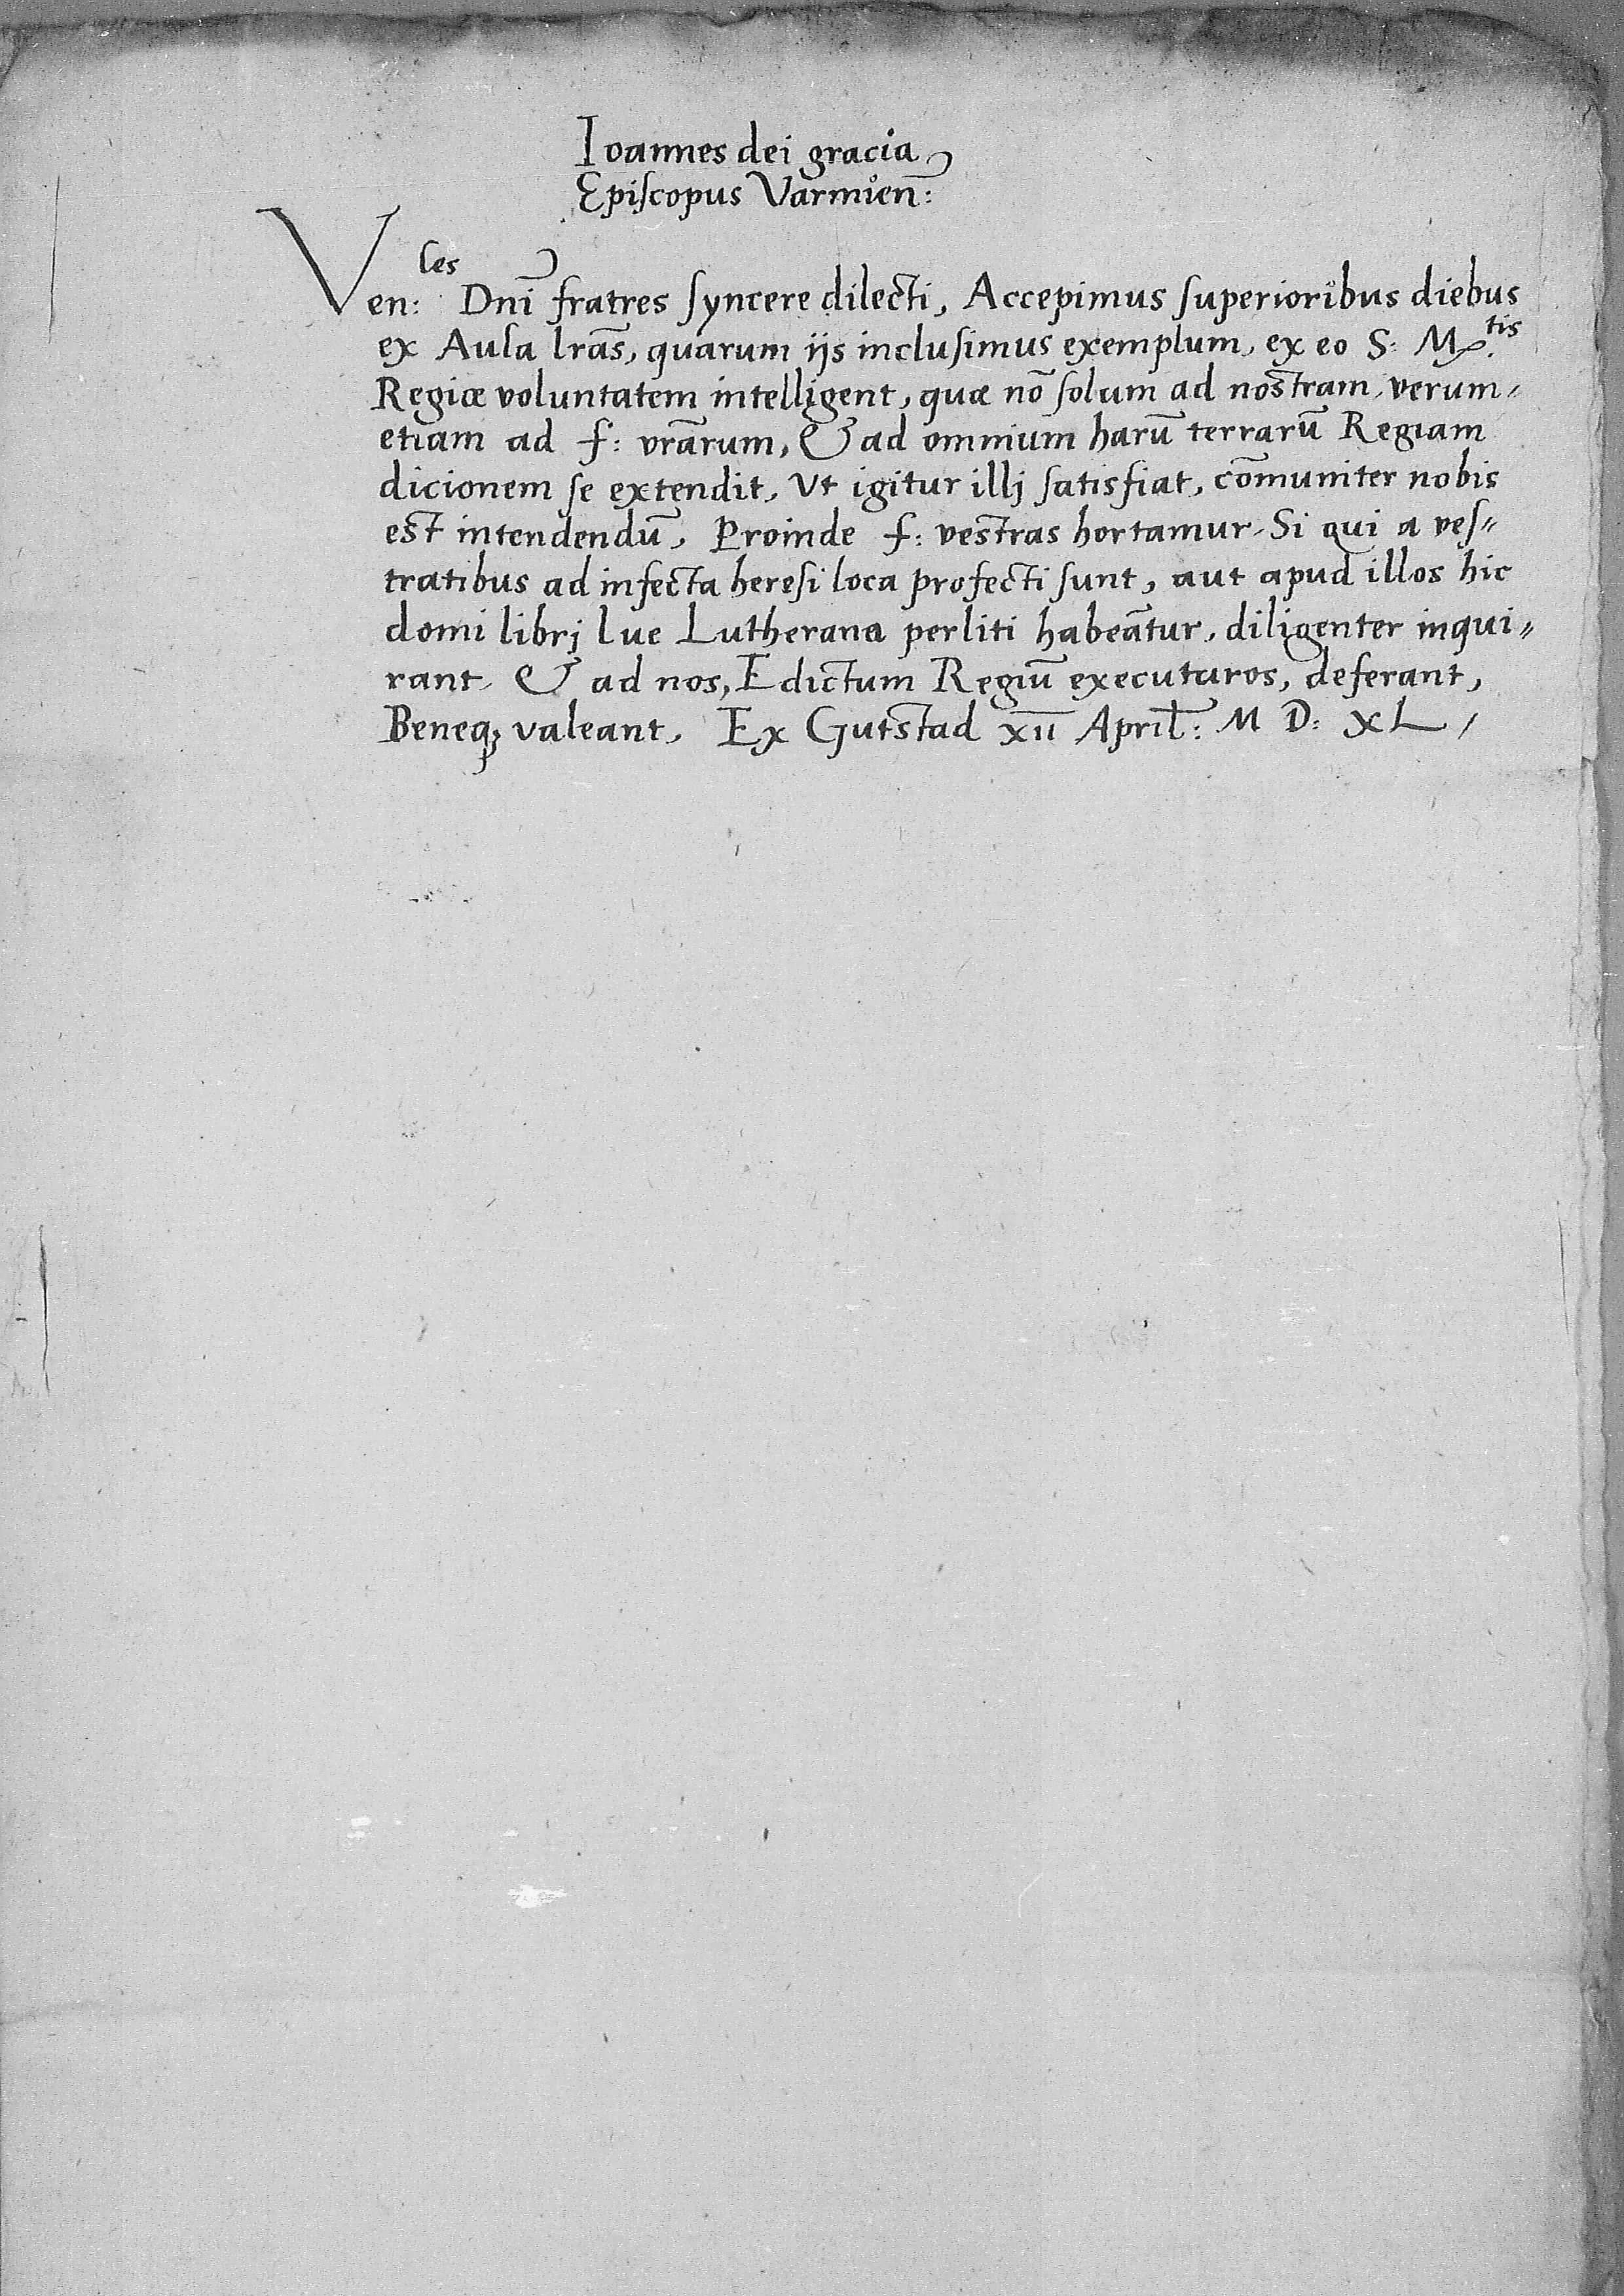 Ioannes dei gracia
Episcopus Varmien̄:
Ven:les Dnī fratres syncere dilecti, Accepimus superioribus diebus
ex Aula lrās, quarum ijs inclusimus exemplum, ex eo S: M.tis
Regiæ voluntatem intelligent, quæ nō solum ad nostram, verum,
etiam ad f: vrārum, & ad omnium harū terrarū Regiam
dicionem se extendit, Vt igitur illj satisfiat, cōmuniter nobis
est intendendū, Proinde f: vestras hortamur, Si qui a ves,,
tratibus ad infecta heresi loca profecti sunt, aut apud illos hic
domi librj lue Lutherana perliti habeātur, diligenter inqui,,
rant, & ad nos, Edictum Regiū executuros, deferant,
Beneq; valeant, Ex Gutstad xii April: M D: XL /